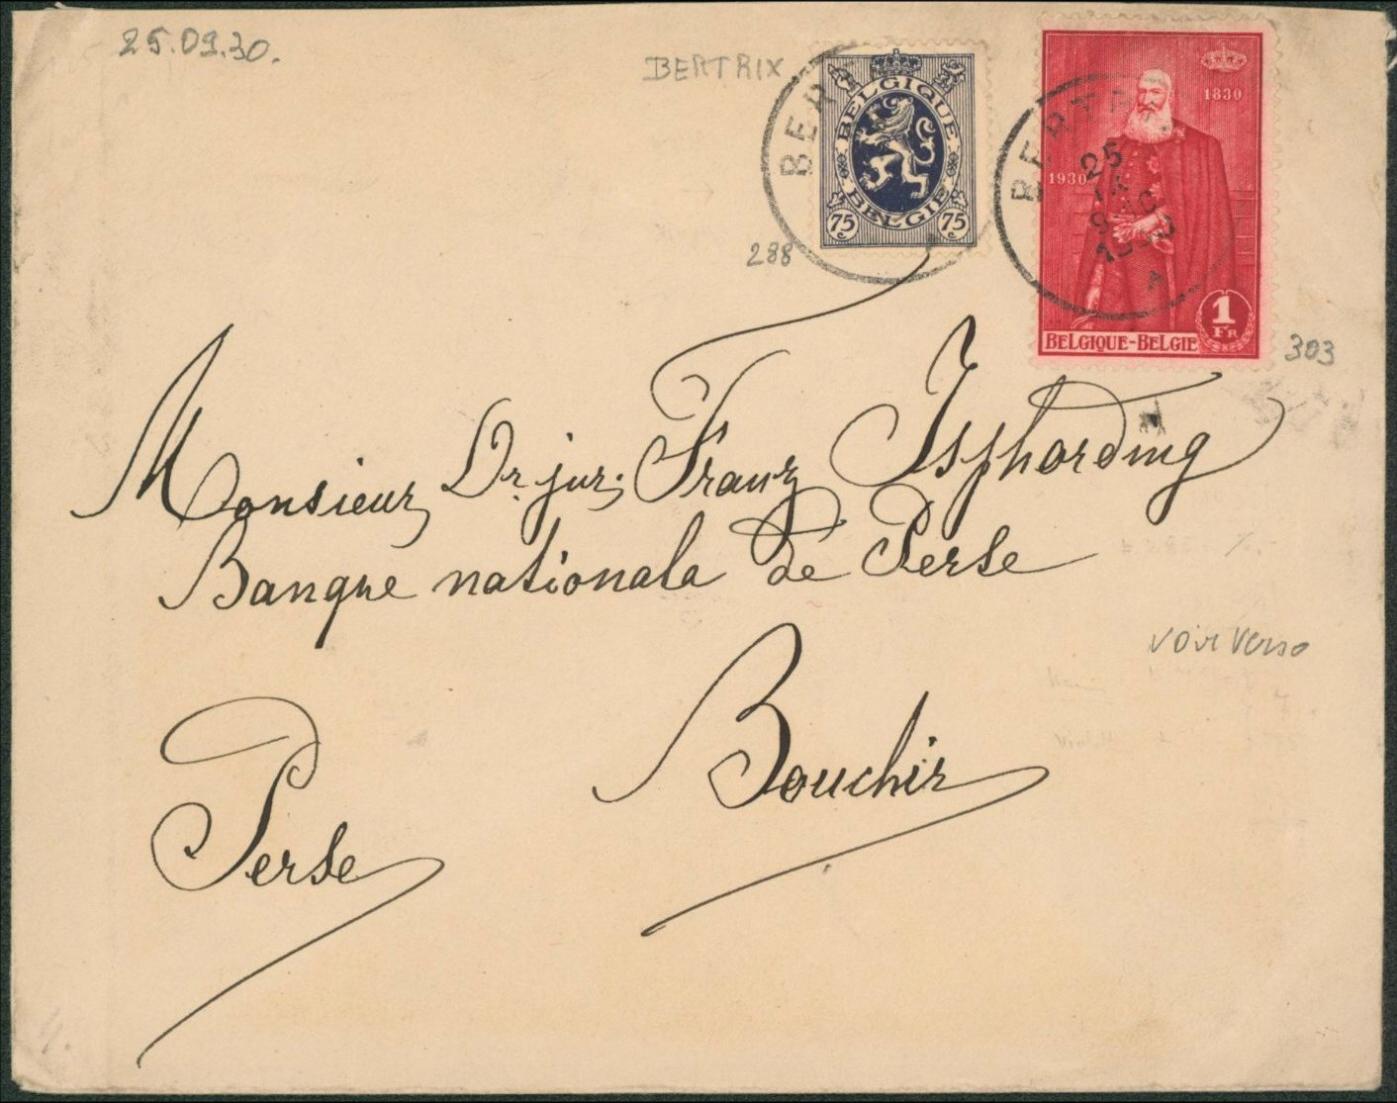 25.09.30.
BERTRIX
BELGIQUE
BELGIE
75 c 75 c
288
1830
1930
1 FR
BELGIQUE-BELGIE
303
BER
BERTR
25
IX
1930
A
Monsieur Dr. jur. Franz Isphording
Banque nationala de Perse
voir verso
Bouchir
Perse